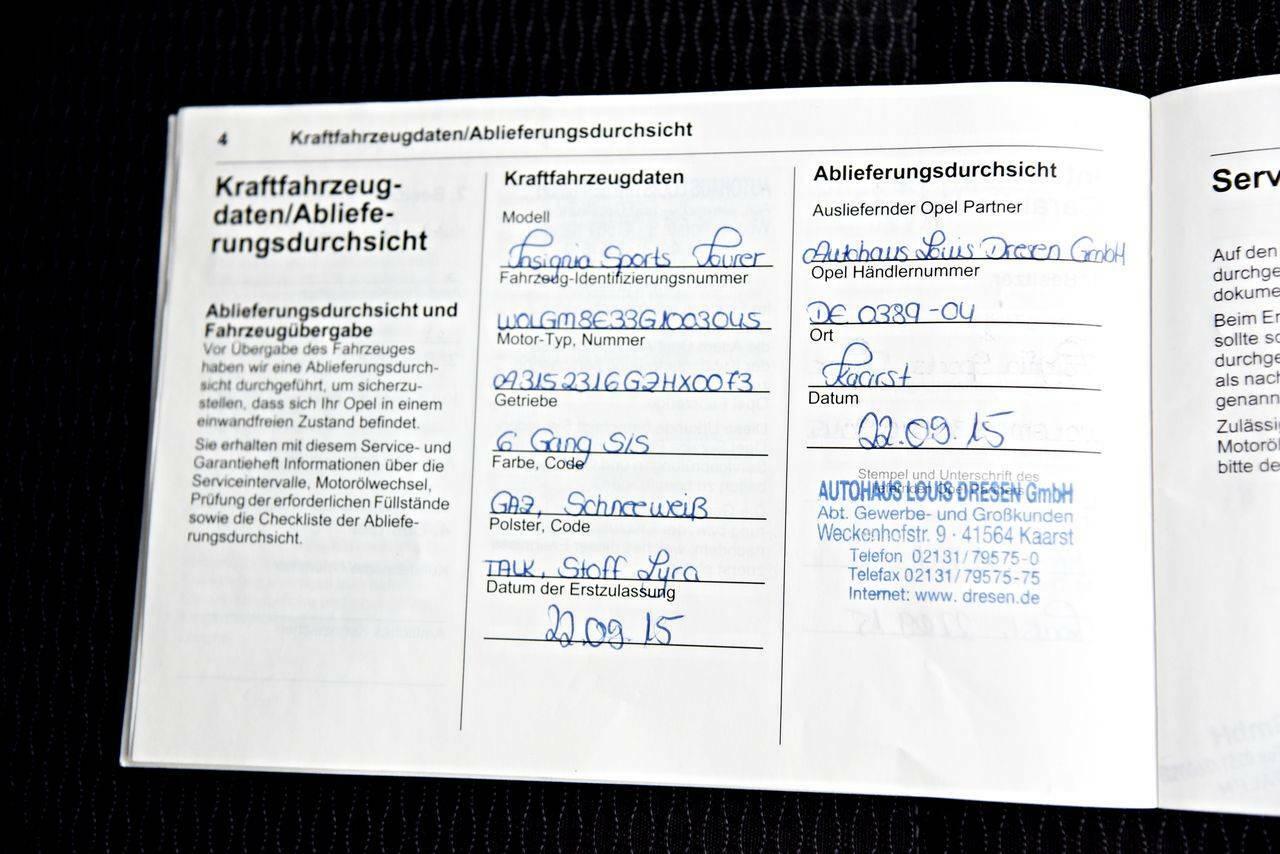 4 Kraftfahrzeugdaten/Ablieferungsdurchsicht
Kraftfahrzeug-
daten/Abliefe-
rungsdurchsicht
Ablieferungsdurchsicht und
Fahrzeugübergabe
Vor Übergabe des Fahrzeuges
haben wir eine Ablieferungsdurch-
sicht durchgeführt, um sicherzu-
stellen, dass sich Ihr Opel in einem
einwandfreien Zustand befindet.
Sie erhalten mit diesem Service- und
Garantieheft Informationen über die
Serviceintervalle, Motorölwechsel,
Prüfung der erforderlichen Füllstände
sowie die Checkliste der Abliefe-
rungsdurchsicht.
Kraftfahrzeugdaten
Modell
Insignia Sports Tourer
Fahrzeug-Identifizierungsnummer
W0LGM8E33G1003045
Motor-Typ, Nummer
093152316G2HX0073
Getriebe
6 Gang S/S
Farbe, Code
GAZ, Schneeweiß
Polster, Code
TALK, Stoff Lyra
Datum der Erstzulassung
22.09.15
Ablieferungsdurchsicht
Ausliefernder Opel Partner
Autohaus Louis Dresen GmbH
Opel Händlernummer
DE 0389-04
Ort
Kaarst
Datum
22.09.15
Stempel und Unterschrift des
AUTOHAUS LOUIS DRESEN GmbH
Abt. Gewerbe- und Großkunden
Weckenhofstr. 9 · 41564 Kaarst
Telefon 02131/79575-0
Telefax 02131/79575-75
Internet: www. dresen.de
Serv
Auf den
durchge
dokume
Beim Er
sollte so
durchge
als nach
genann
Zulässi
Motoröl
bitte de